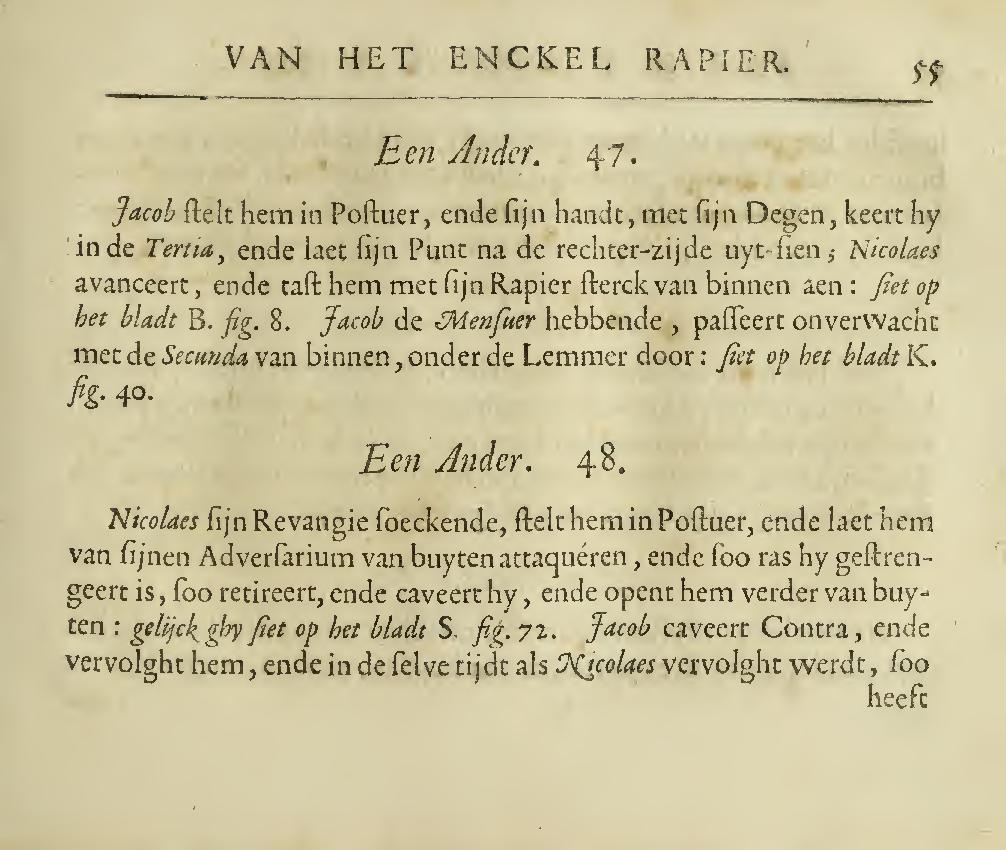 VAN HET ENCKEL RAPIER. 55
Een Ander. 47.
Jacob ſtelt hem in Poſtuer, ende ſijn handt, met ſijn Degen, keert hy
in de Tertia, ende laet ſijn Punt na de rechter-zijde uyt-ſien; Nicolaes
avanceert, ende taſt hem met ſijn Rapier ſterck van binnen aen: ſiet op
het bladt B. fig. 8. Jacob de Menſuer hebbende, paſſeert onverwacht
met de Secunda van binnen, onder de Lemmer door: ſiet op het bladt K.
fig. 40.
Een Ander. 48.
Nicolaes ſijn Revangie ſoeckende, ſtelt hem in Poſtuer, ende laet hem
van ſijnen Adverſarium van buyten attaquéren, ende ſoo ras hy geſtren-
geert is, ſoo retireert, ende caveert hy, ende opent hem verder van buy-
ten: gelijck ghy ſiet op het bladt S. fig. 72. Jacob caveert Contra, ende
vervolght hem, ende in de ſelve tijdt als Nicolaes vervolght werdt, ſoo
heeft